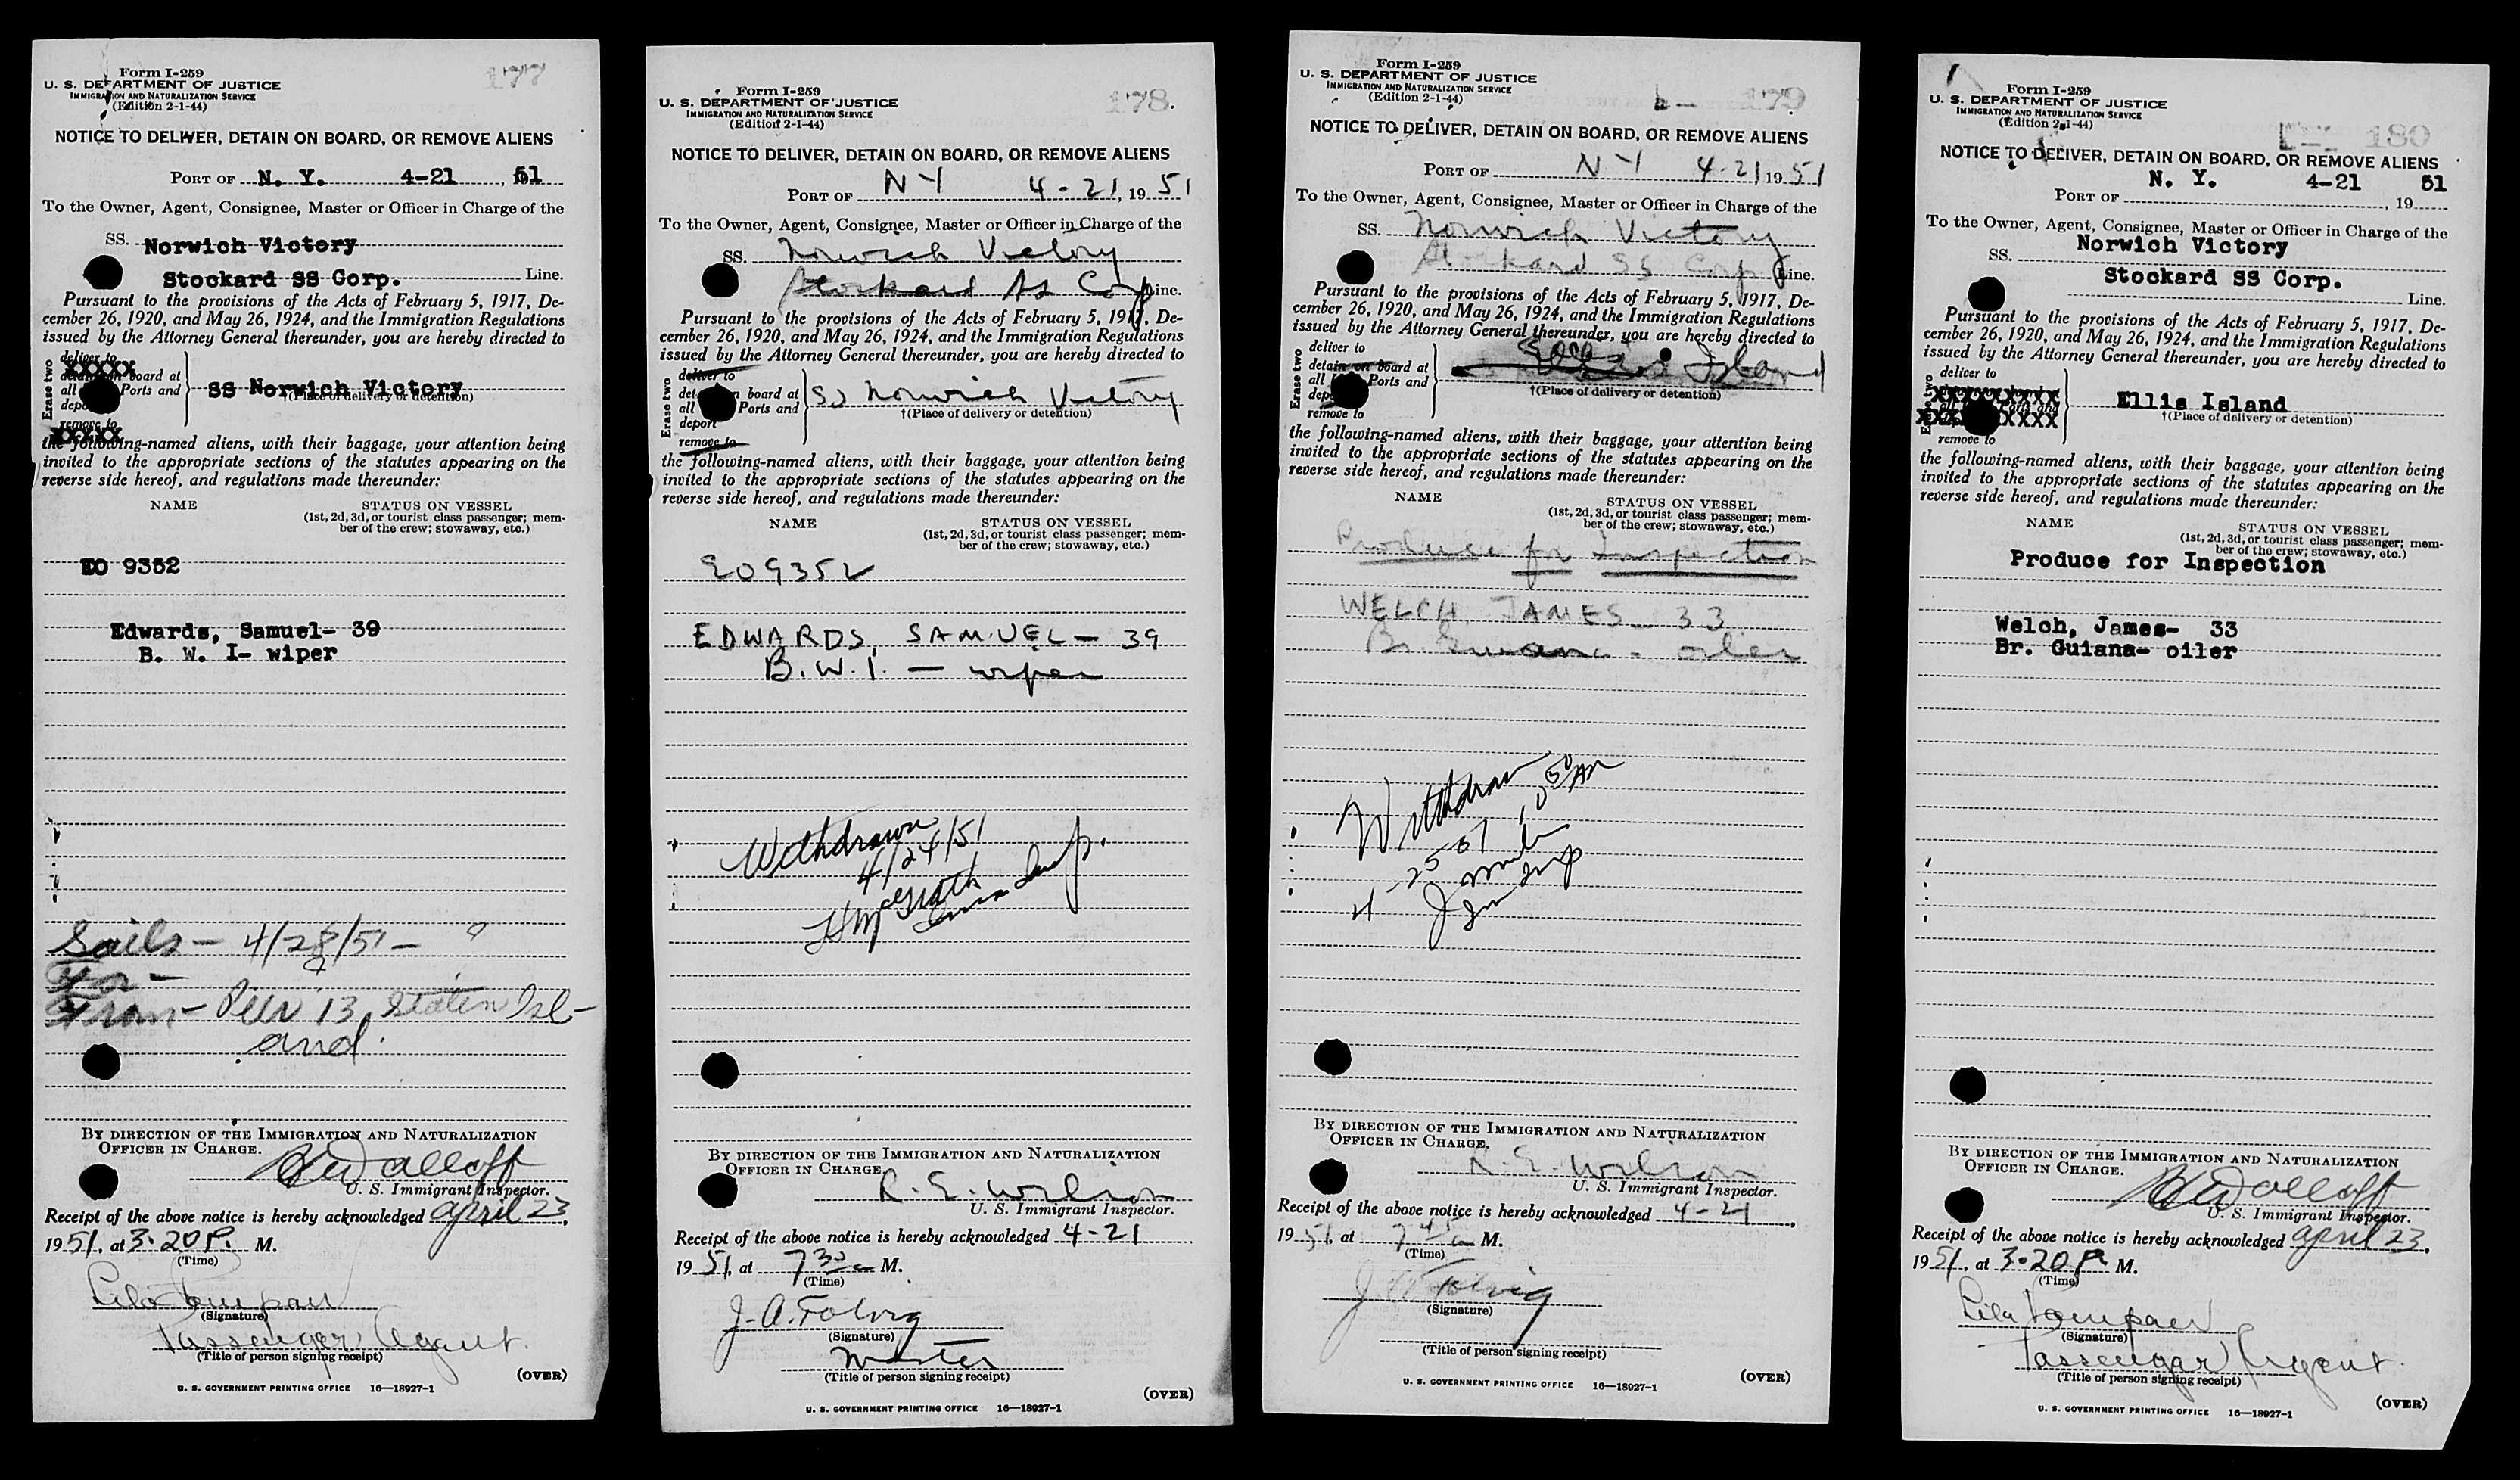 Form I-259
U. S. DEPARTMENT OF JUSTICE
IMMIGRATION AND NATURALIZATION SERVICE
(Edition 2-1-44)
177
NOTICE TO DELIVER, DETAIN ON BOARD, OR REMOVE ALIENS
PORT OF N. Y. 4-21, 51
To the Owner, Agent, Consignee, Master or Officer in Charge of the
SS. Norwich Victory
Stockard SS Corp. Line.
Pursuant to the provisions of the Acts of February 5, 1917, De-
cember 26, 1920, and May 26, 1924, and the Immigration Regulations
issued by the Attorney General thereunder, you are hereby directed to
Erase two
deliver to
board at
all Ports and
remove to
SS Norwich Victory
†(Place of delivery or detention)
the following-named aliens, with their baggage, your attention being
invited to the appropriate sections of the statutes appearing on the
reverse side hereof, and regulations made thereunder:
NAME STATUS ON VESSEL
(1st, 2d, 3d, or tourist class passenger; mem-
ber of the crew; stowaway, etc.)
EO 9352
Edwards, Samuel- 39
B. W. I- wiper
Sails - 4/28/51 -
For -
From - Pier 13, Staten Isl-
and.
BY DIRECTION OF THE IMMIGRATION AND NATURALIZATION
OFFICER IN CHARGE.
U. S. Immigrant Inspector.
Receipt of the above notice is hereby acknowledged April 23,
1951, at 3.20 P. M.
(Time)
Lila
(Signature)
Passenger Agent.
(Title of person signing receipt)
(OVER)
U. S. GOVERNMENT PRINTING OFFICE 16—18927-1
Form I-259
U. S. DEPARTMENT OF JUSTICE
IMMIGRATION AND NATURALIZATION SERVICE
(Edition 2-1-44)
178
NOTICE TO DELIVER, DETAIN ON BOARD, OR REMOVE ALIENS
PORT OF N Y 4-21, 1951
To the Owner, Agent, Consignee, Master or Officer in Charge of the
SS. Norwich Victory
Stockard SS Corp Line.
Pursuant to the provisions of the Acts of February 5, 1917, De-
cember 26, 1920, and May 26, 1924, and the Immigration Regulations
issued by the Attorney General thereunder, you are hereby directed to
Erase two
deliver to
board at
all Ports and
deport
remove to
SS Norwich Victory
†(Place of delivery or detention)
the following-named aliens, with their baggage, your attention being
invited to the appropriate sections of the statutes appearing on the
reverse side hereof, and regulations made thereunder:
NAME STATUS ON VESSEL
(1st, 2d, 3d, or tourist class passenger; mem-
ber of the crew; stowaway, etc.)
EO9352
EDWARDS, SAMUEL - 39
B.W.I. - wiper
Withdrawn
4/24/51
BY DIRECTION OF THE IMMIGRATION AND NATURALIZATION
OFFICER IN CHARGE.
R. E. Wilson
U. S. Immigrant Inspector.
Receipt of the above notice is hereby acknowledged 4-21
1951, at 7 30 a M.
(Time)
(Signature)
Master
(Title of person signing receipt)
(OVER)
U. S. GOVERNMENT PRINTING OFFICE 16—18927-1
Form I-259
U. S. DEPARTMENT OF JUSTICE
IMMIGRATION AND NATURALIZATION SERVICE
(Edition 2-1-44)
179
NOTICE TO DELIVER, DETAIN ON BOARD, OR REMOVE ALIENS
PORT OF N Y 4-21 1951
To the Owner, Agent, Consignee, Master or Officer in Charge of the
SS. Norwich Victory
Stockard SS Corp Line.
Pursuant to the provisions of the Acts of February 5, 1917, De-
cember 26, 1920, and May 26, 1924, and the Immigration Regulations
issued by the Attorney General thereunder, you are hereby directed to
Erase two
deliver to
detain on board at
all Ports and
remove to
Ellis Island
†(Place of delivery or detention)
the following-named aliens, with their baggage, your attention being
invited to the appropriate sections of the statutes appearing on the
reverse side hereof, and regulations made thereunder:
NAME STATUS ON VESSEL
(1st, 2d, 3d, or tourist class passenger; mem-
ber of the crew; stowaway, etc.)
Produce for Inspection
WELCH, JAMES - 33
Br. Guiana - oiler
Withdrawn
BY DIRECTION OF THE IMMIGRATION AND NATURALIZATION
OFFICER IN CHARGE.
R. E. Wilson
U. S. Immigrant Inspector.
Receipt of the above notice is hereby acknowledged 4-21,
1951, at 7 45 a M.
(Time)
(Signature)
(Title of person signing receipt)
(OVER)
U. S. GOVERNMENT PRINTING OFFICE 16—18927-1
Form I-259
U. S. DEPARTMENT OF JUSTICE
IMMIGRATION AND NATURALIZATION SERVICE
(Edition 2-1-44)
180
NOTICE TO DELIVER, DETAIN ON BOARD, OR REMOVE ALIENS
N. Y. 4-21 51
PORT OF , 19
To the Owner, Agent, Consignee, Master or Officer in Charge of the
SS. Norwich Victory
Stockard SS Corp.
Line.
Pursuant to the provisions of the Acts of February 5, 1917, De-
cember 26, 1920, and May 26, 1924, and the Immigration Regulations
issued by the Attorney General thereunder, you are hereby directed to
deliver to
remove to
Ellis Island
†(Place of delivery or detention)
the following-named aliens, with their baggage, your attention being
invited to the appropriate sections of the statutes appearing on the
reverse side hereof, and regulations made thereunder:
NAME STATUS ON VESSEL
(1st, 2d, 3d, or tourist class passenger; mem-
ber of the crew; stowaway, etc.)
Produce for Inspection
Welch, James- 33
Br. Guiana- oiler
BY DIRECTION OF THE IMMIGRATION AND NATURALIZATION
OFFICER IN CHARGE.
U. S. Immigrant Inspector.
Receipt of the above notice is hereby acknowledged April 23,
1951, at 3.20 P. M.
(Time)
Lila
(Signature)
Passenger Agent.
(Title of person signing receipt)
(OVER)
U. S. GOVERNMENT PRINTING OFFICE 16—18927-1